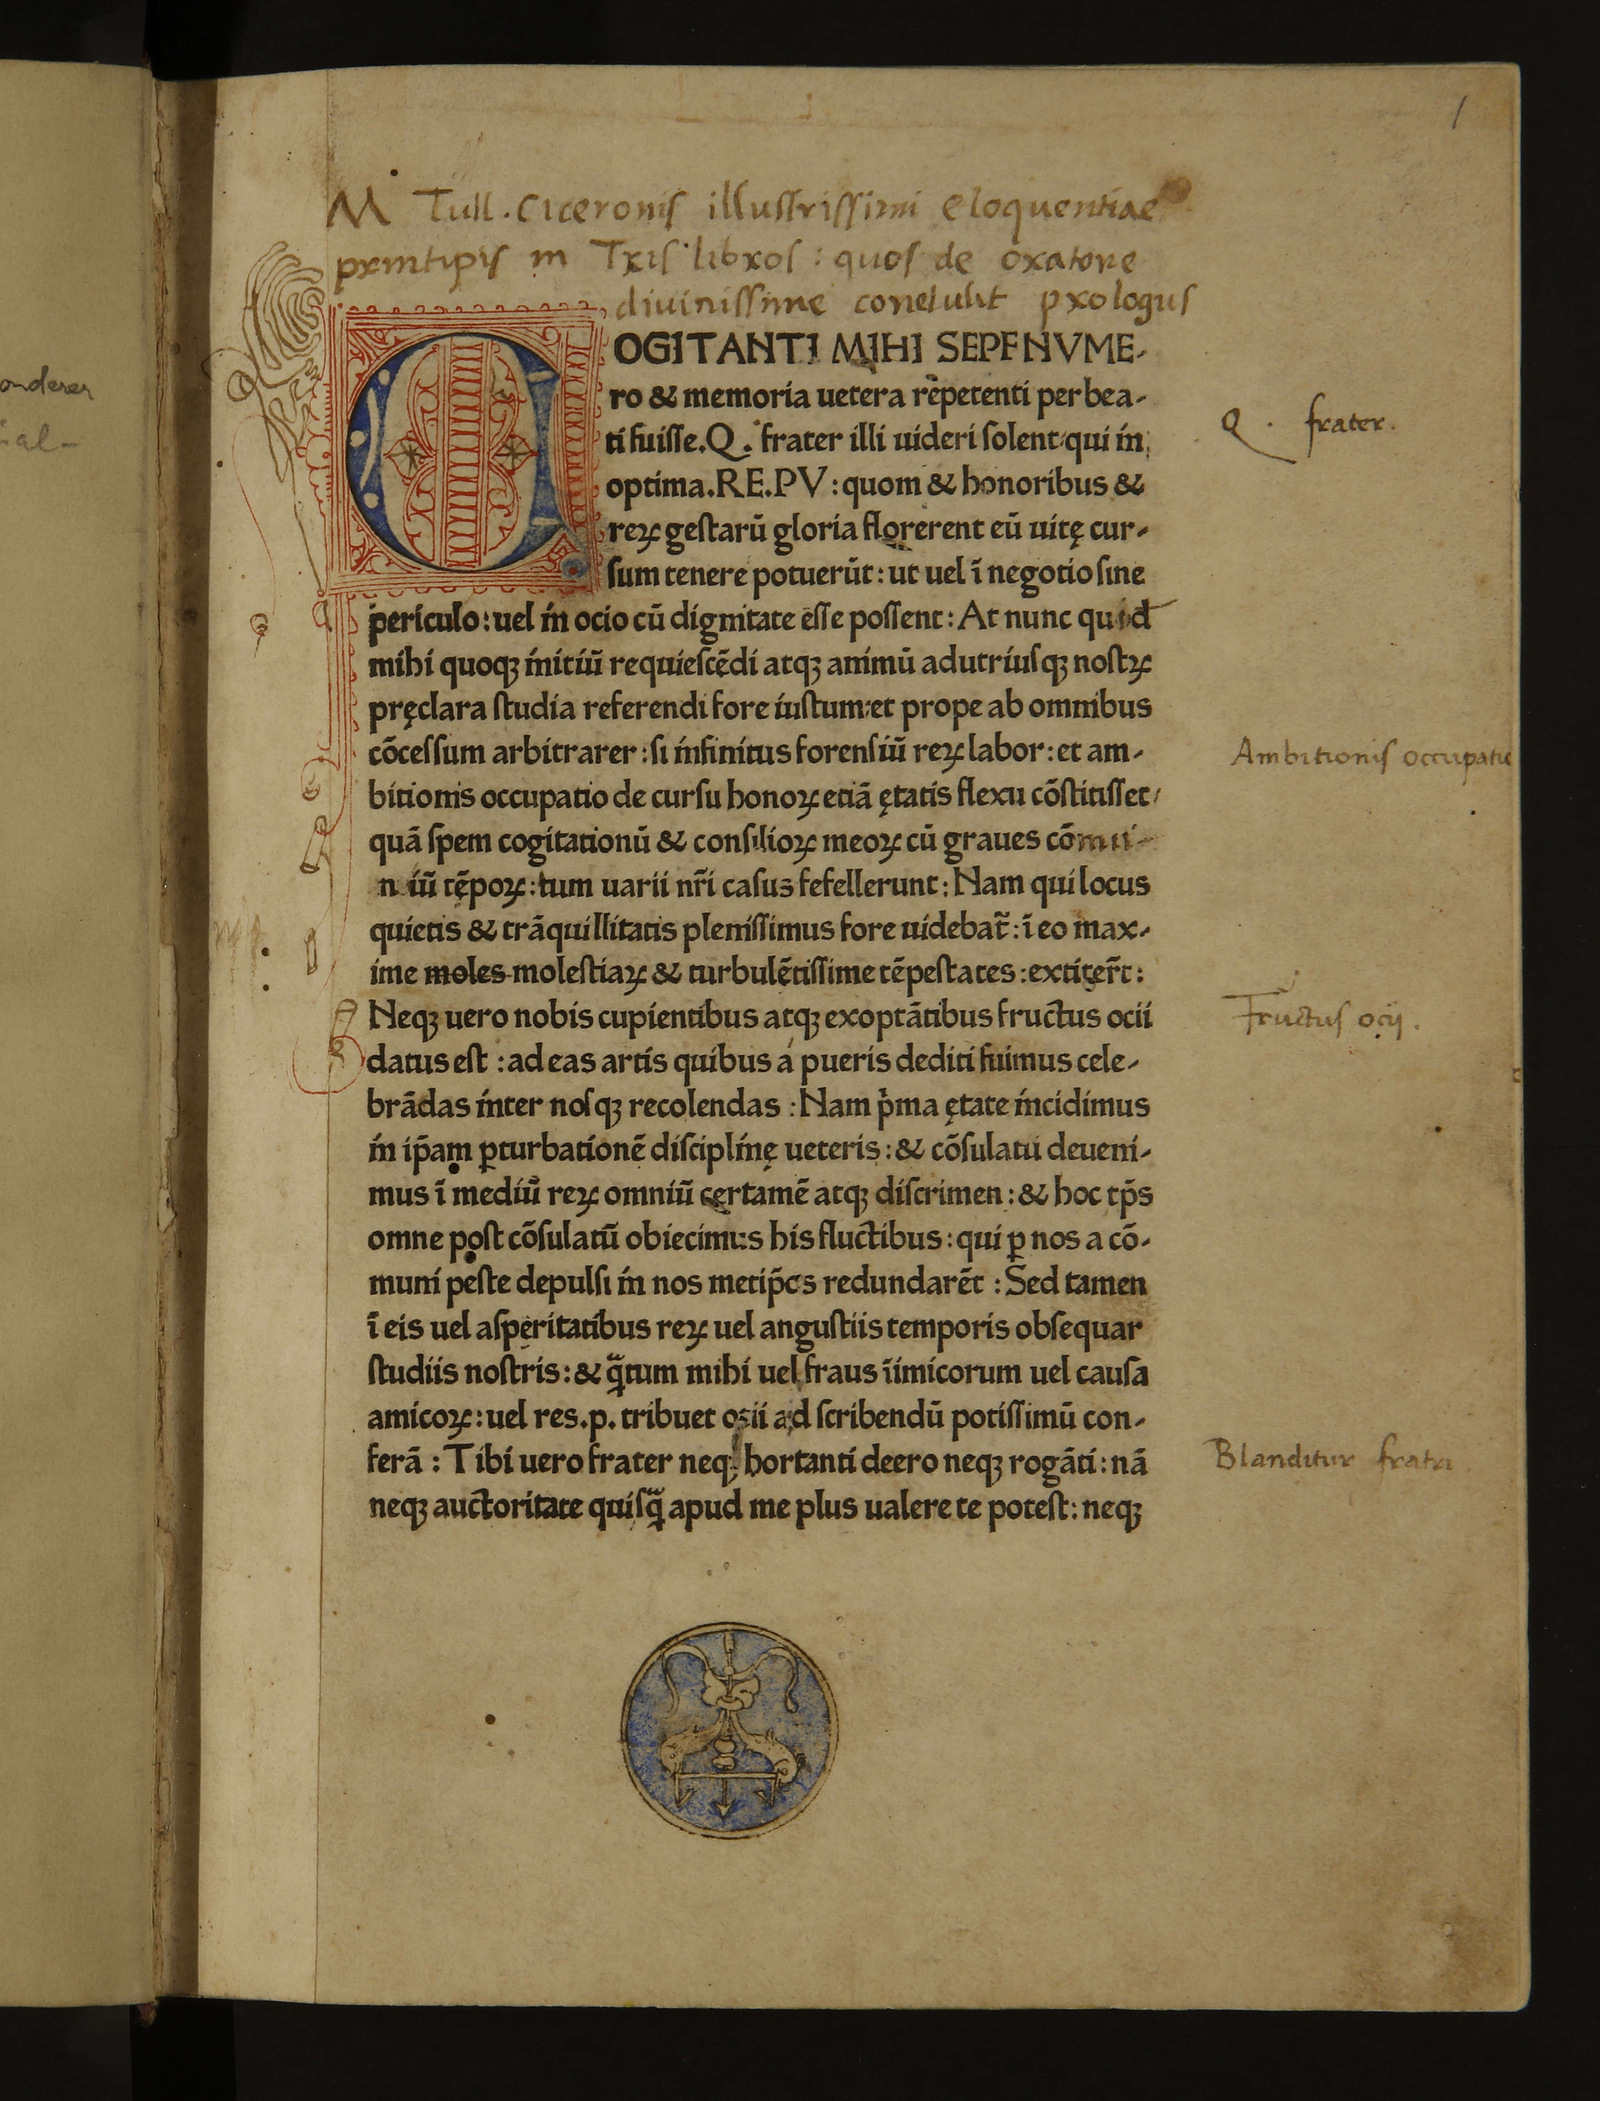 1
M Tull. Ciceronis illustrissimi eloquentiae
printipis in Tris libros: quos de oratore
divinissime conclusit prologus
COGITANTI MIHI SEPENVME-
ro & memoria uetera repetenti perbea-
ti fuisse. Q. frater illi uideri solent: qui in
optima. RE. PV: quom & honoribus &
reꝝ gestarū gloria florerent eū uitę cur-
sum tenere potuerūt: ut uel ī negotio sine
periculo: uel in ocio cū dignitate esse possent: At nunc quid
mihi quoqꝫ initiū requiescēdi atqꝫ animū adutriusqꝫ nostꝝ
pręclara studia referendi fore iustum: et prope ab omnibus
cōcessum arbitrarer: si infinitus forensiū reꝝ labor: et am-
bitionis occupatio de cursu honoꝝ etiā ętatis flexu cōstitisset/
quā spem cogitationū & consilioꝝ meoꝝ cū graues cōmu-
niū tēpoꝝ: tum uarii nr̄i casus fefellerunt: Nam qui locus
quietis & trāquillitatis plenissimus fore uidebat̄: ī eo max-
ime moles molestiaꝝ & turbulētissime tēpestates: extiter̄t:
Neqꝫ uero nobis cupientibus atqꝫ exoptātibus fructus ocii
datus est: ad eas artis quibus a pueris dediti fuimus cele-
brādas inter nosqꝫ recolendas: Nam pͥma ętate incidimus
in ip̄am ꝑturbationē disciplinę ueteris: & cōsulatu deueni-
mus ī mediū reꝝ omniū certamē atqꝫ discrimen: & hoc tp̄s
omne post cōsulatū obiecimus his fluctibus: qui ꝑ nos a cō-
muni peste depulsi in nos metip̄os redundarēt: Sed tamen
ī eis uel asperitatibus reꝝ uel angustiis temporis obsequar
studiis nostris: & qͣ̄tum mihi uel fraus īimicorum uel causa
amicoꝝ: uel res.p. tribuet ocii ad scribendū potissimū con-
ferā: Tibi uero frater neqꝫ hortanti deero neqꝫ rogāti: nā
neqꝫ auctoritate quisqͣ̄ apud me plus ualere te potest: neqꝫ
Q. frater.
Ambitionis occupatio
Fructus ocij.
Blanditur fratri
onderer